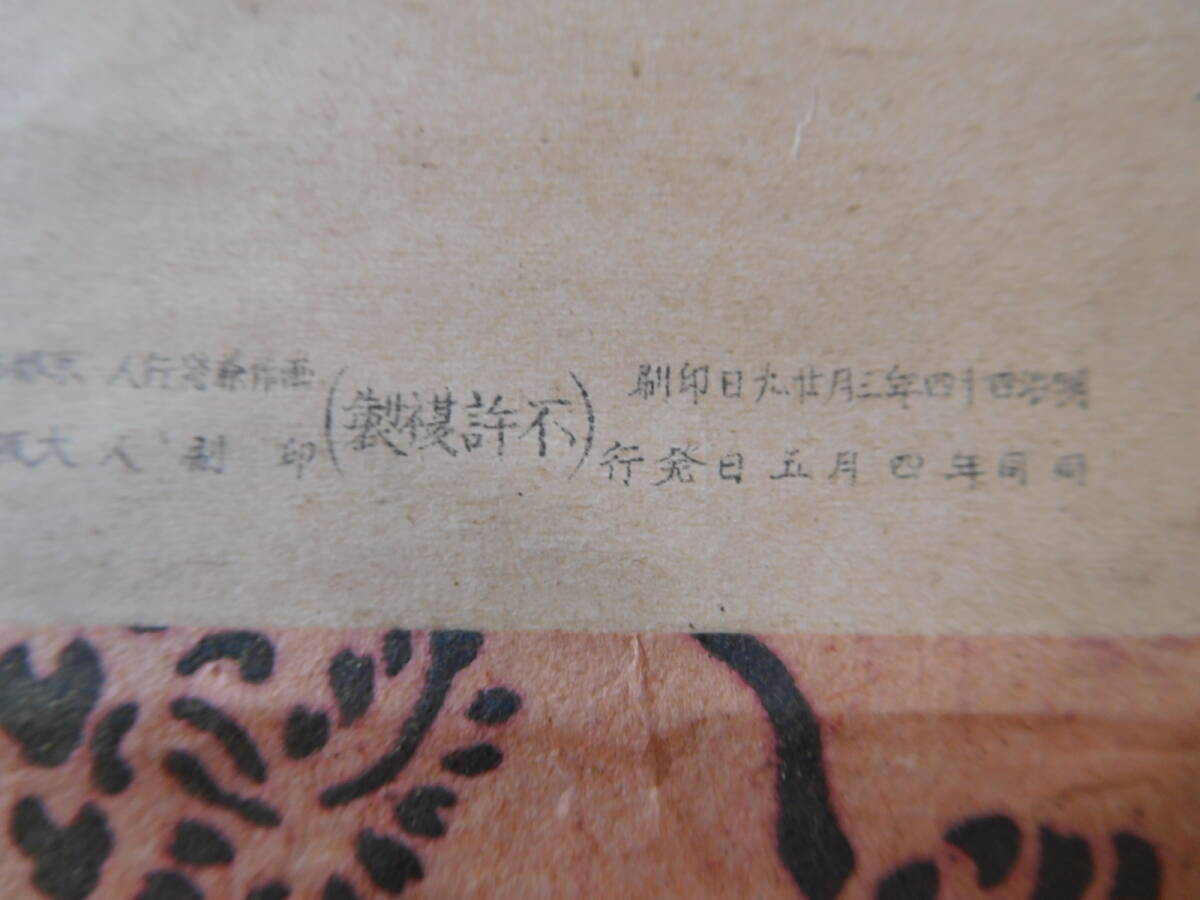 明治四十四年三月廿九日印刷
同同年四月五日発行
(不許模製)
画作兼発行人
印刷人 大阪